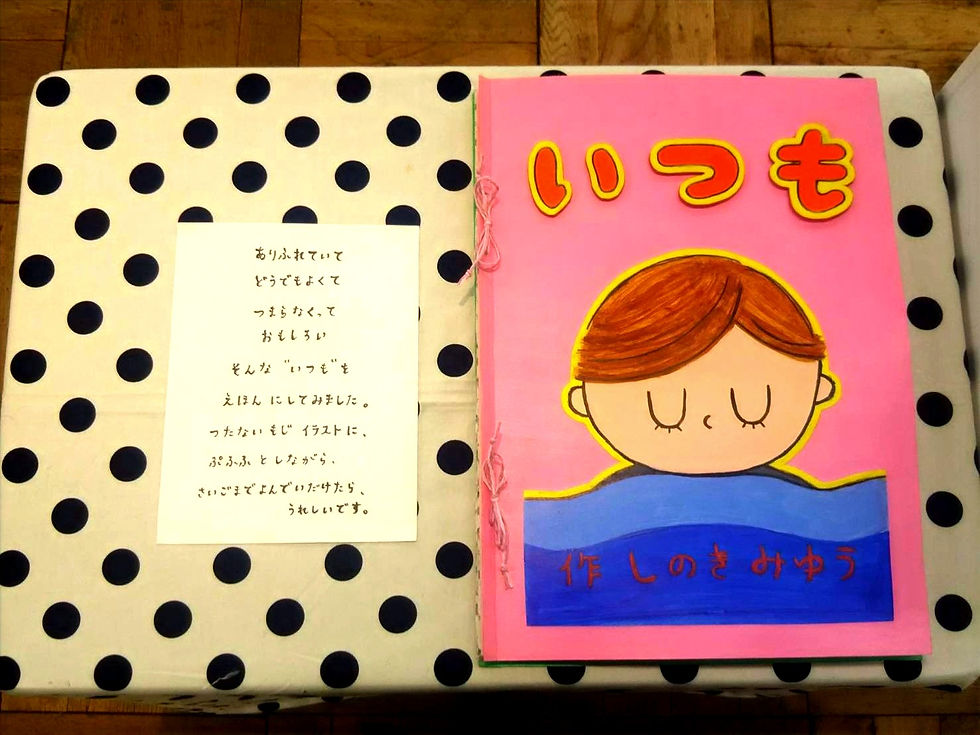 ありふれていて
どうでもよくて
つまらなくって
おもしろい
そんな"いつも"を
えほん にしてみました。
つたない もじ イラストに、
ぷふふ としながら、
さいごまでよんでいだけたら、
うれしいです。
いつも
作 しのき みゆう